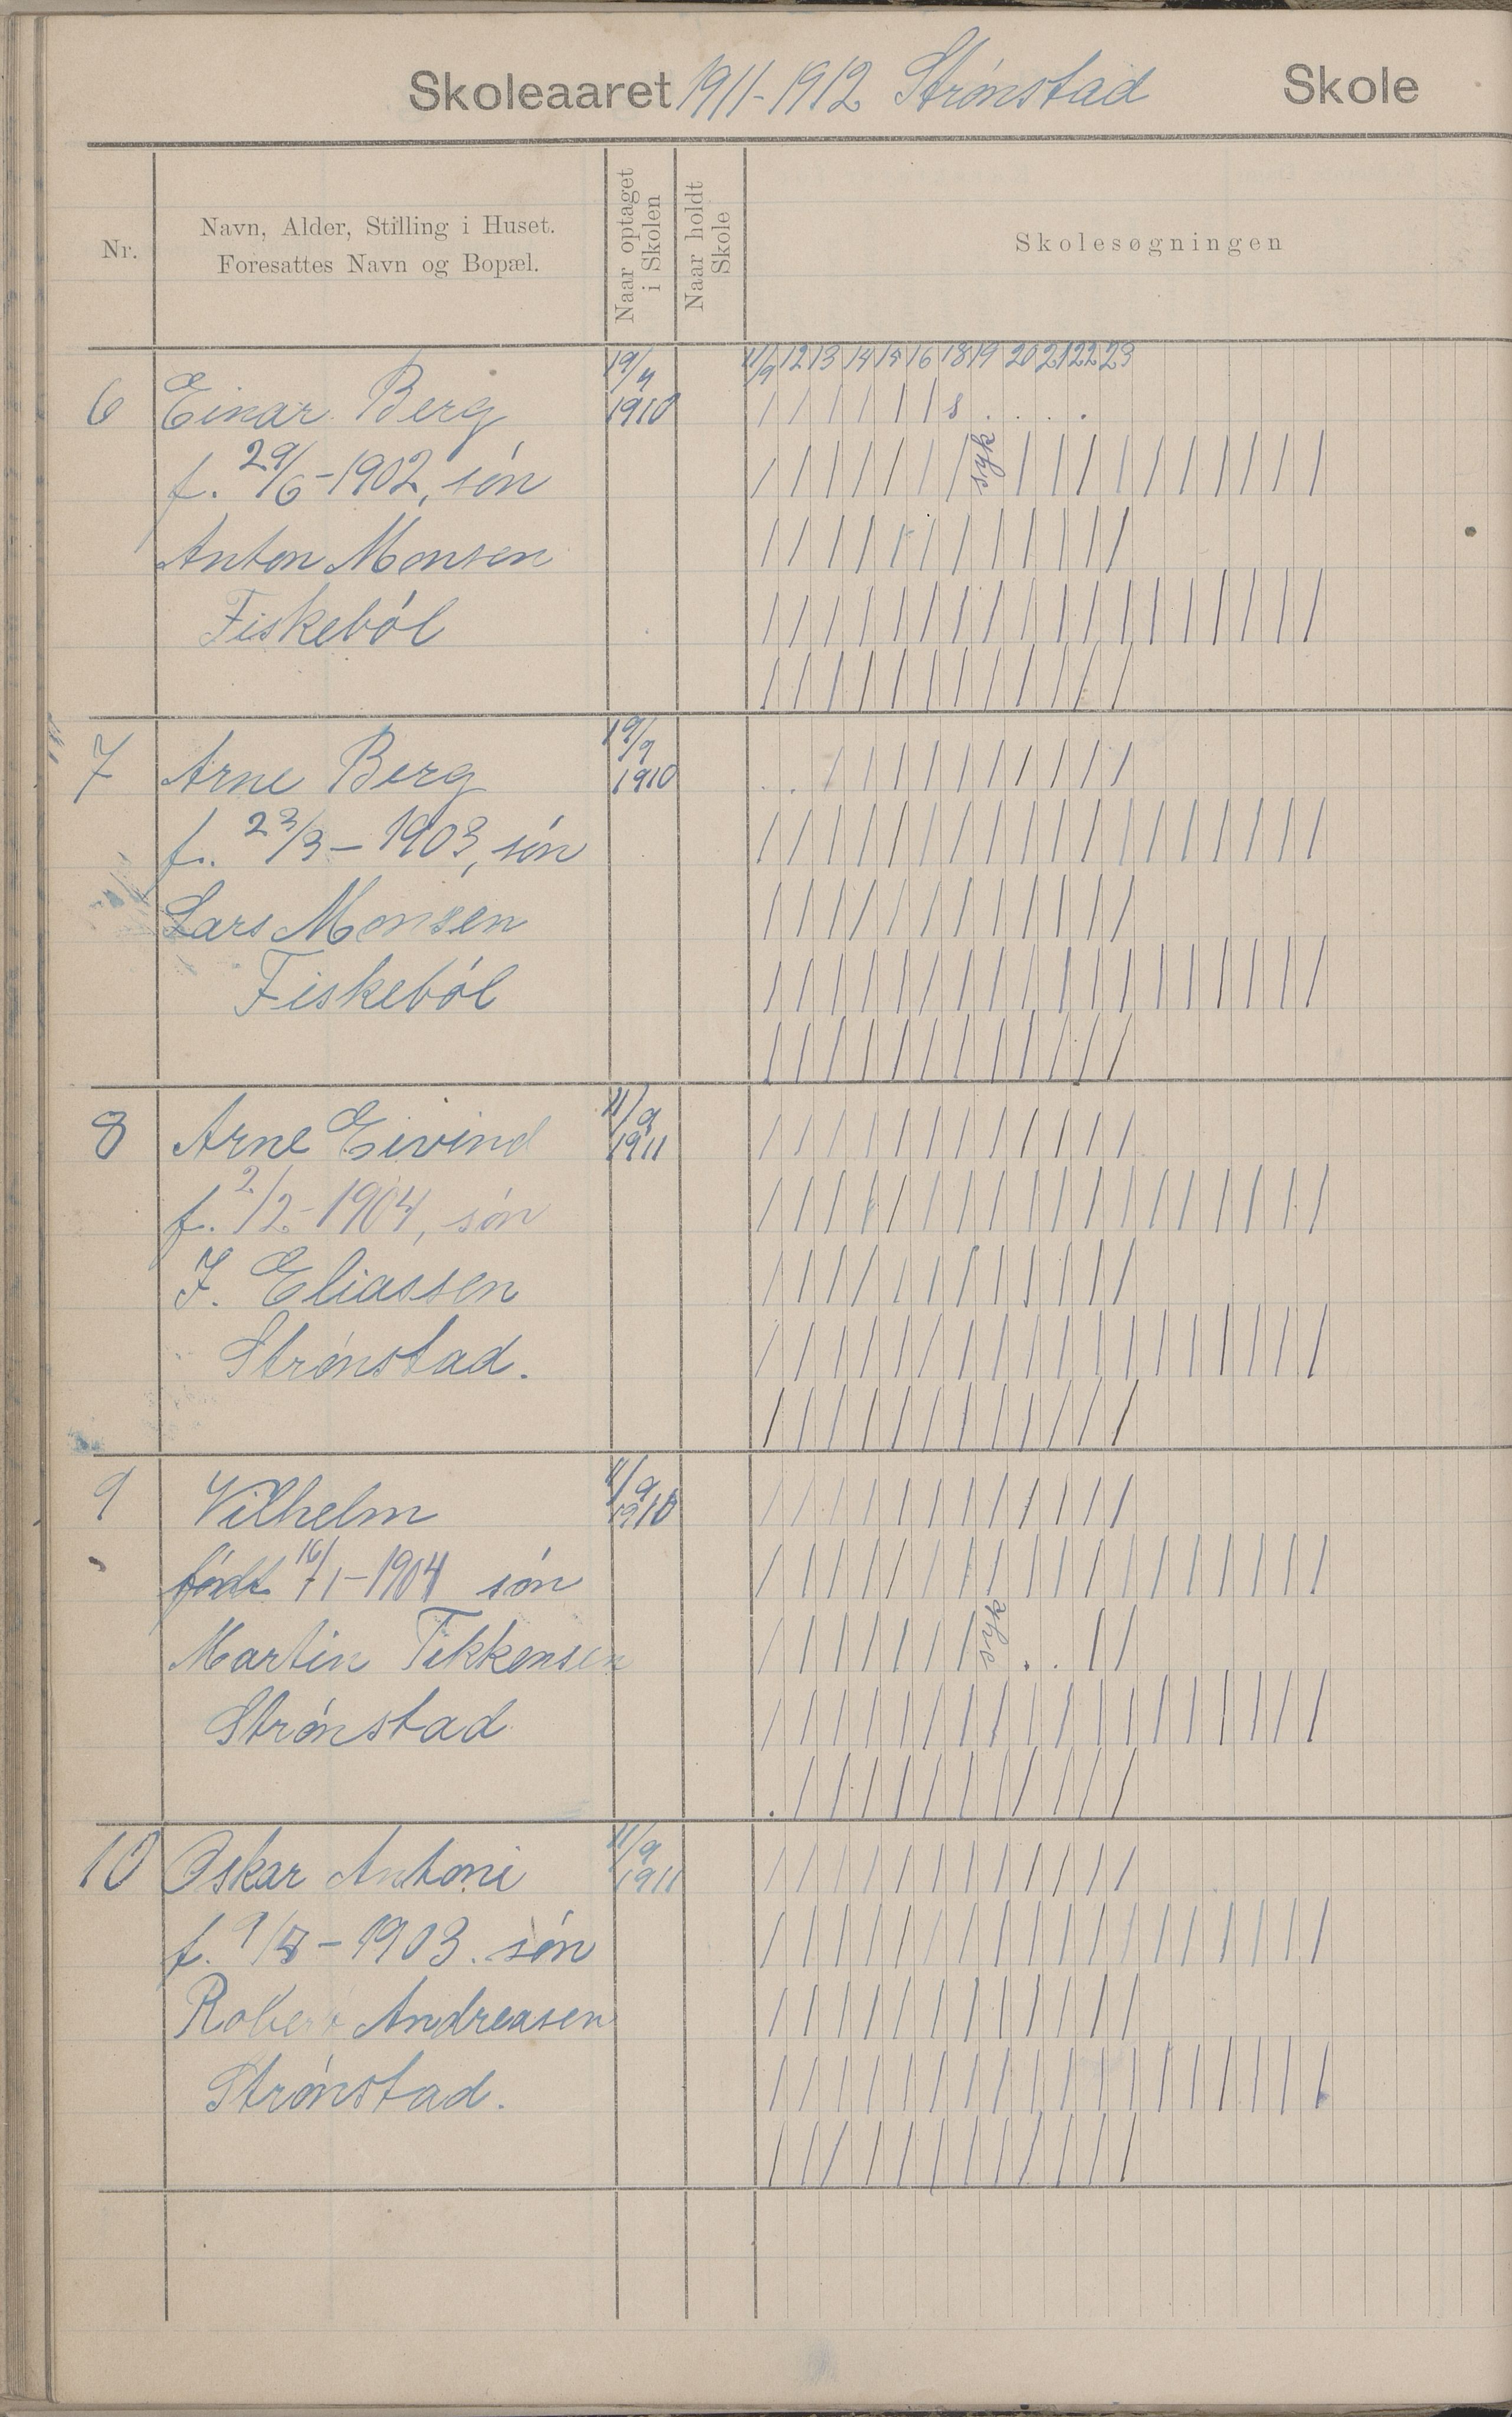 Skoleaaret 1911-1912 Strønstad Skole
Nr.
Navn, Alder, Stilling i Huset.
Foresattes Navn og Bopæl.
Naar optaget
i Skolen
Naar holdt
Skole
Skolesøgningen
11/9 12 13 14 15 16 18 19 20 21 22 23
6 Einar Berg 1910 / / / / / / s . . . .
f. 29/6-1902, søn / / / / / / / syk / / / / / / / / / /
Anton Monsen / / / / / / / / / / / /
Fiskebøl / / / / / / / / / / / / / / / / / /
/ / / / / / / / / / / /
19/9
7 Arne Berg 1910 . . / / / / / / / / / /
f. 23/3-1903, søn / / / / / / / / / / / / / / / / / /
Lars Monsen / / / / / / / / / / / /
Fiskebøl / / / / / / / / / / / / / / / / / /
/ / / / / / / / / / / /
11/9
8 Arne Eivind 1911 / / / / / / / / / / / /
f. 2/2-1904, søn / / / / / / / / / / / / / / / / / /
J. Eliassen / / / / / / / / / / / /
Strønstad. / / / / / / / / / / / / / / / / / /
/ / / / / / / / / / / /
9 Vilhelm 1910 / / / / / / / / / / / /
født 16/1-1904 søn / / / / / / / / / / / / / / / / / /
Martin / / / / / / / syk . . / /
Strønstad / / / / / / / / / / / / / / / / / /
. / / / / / / / / / / /
11/9
10 Oskar Antoni 1911 / / / / / / / / / / / /
f. -1903. søn / / / / / / / / / / / / / / / / / /
Robert Andreasen / / / / / / / / / / / /
Strønstad. / / / / / / / / / / / / / / / / / /
/ / / / / / / / / / / /